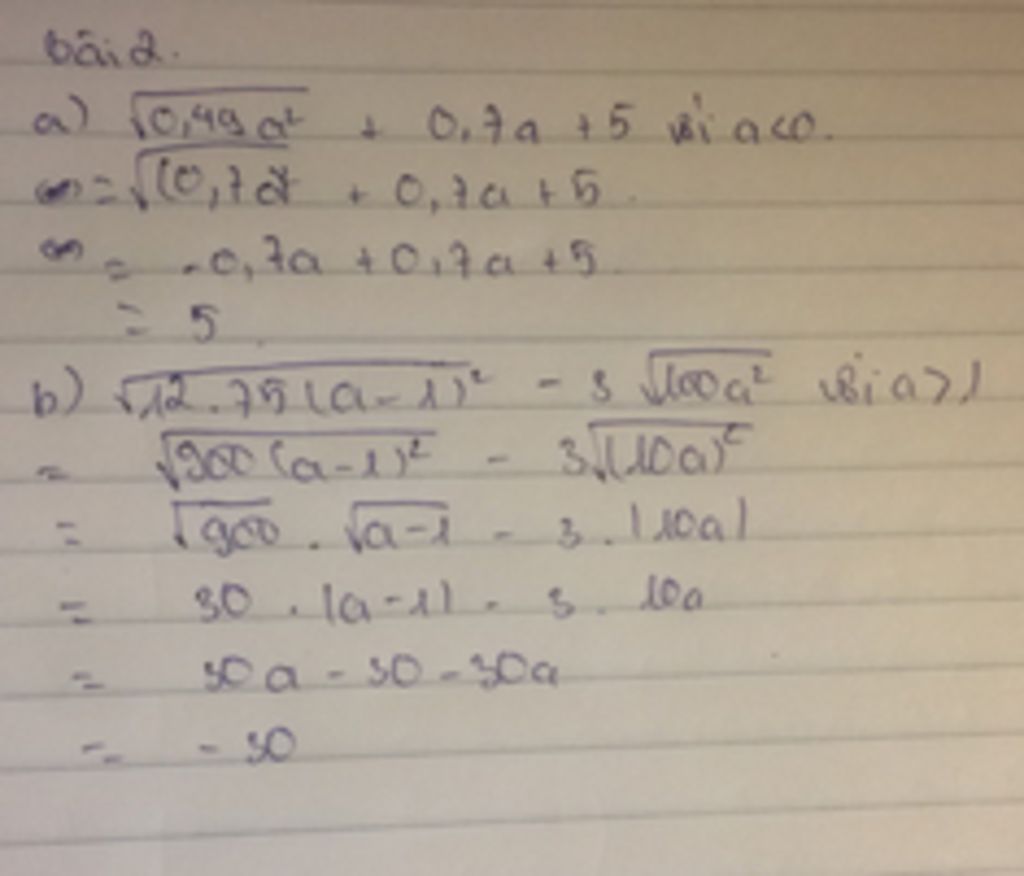 bài 2.
a) √0,49a² + 0,7a + 5 với a<0.
= √(0,7a)² + 0,7a + 5.
= -0,7a + 0,7a + 5.
= 5.
b) √12.75(a-1)² - 3 √100a² với a>1
= √900(a-1)² - 3√(10a)²
= √900 . √a-1 - 3 . |10a|
= 30 . |a-1| - 3 . 10a
= 30a - 30 - 30a
= - 30